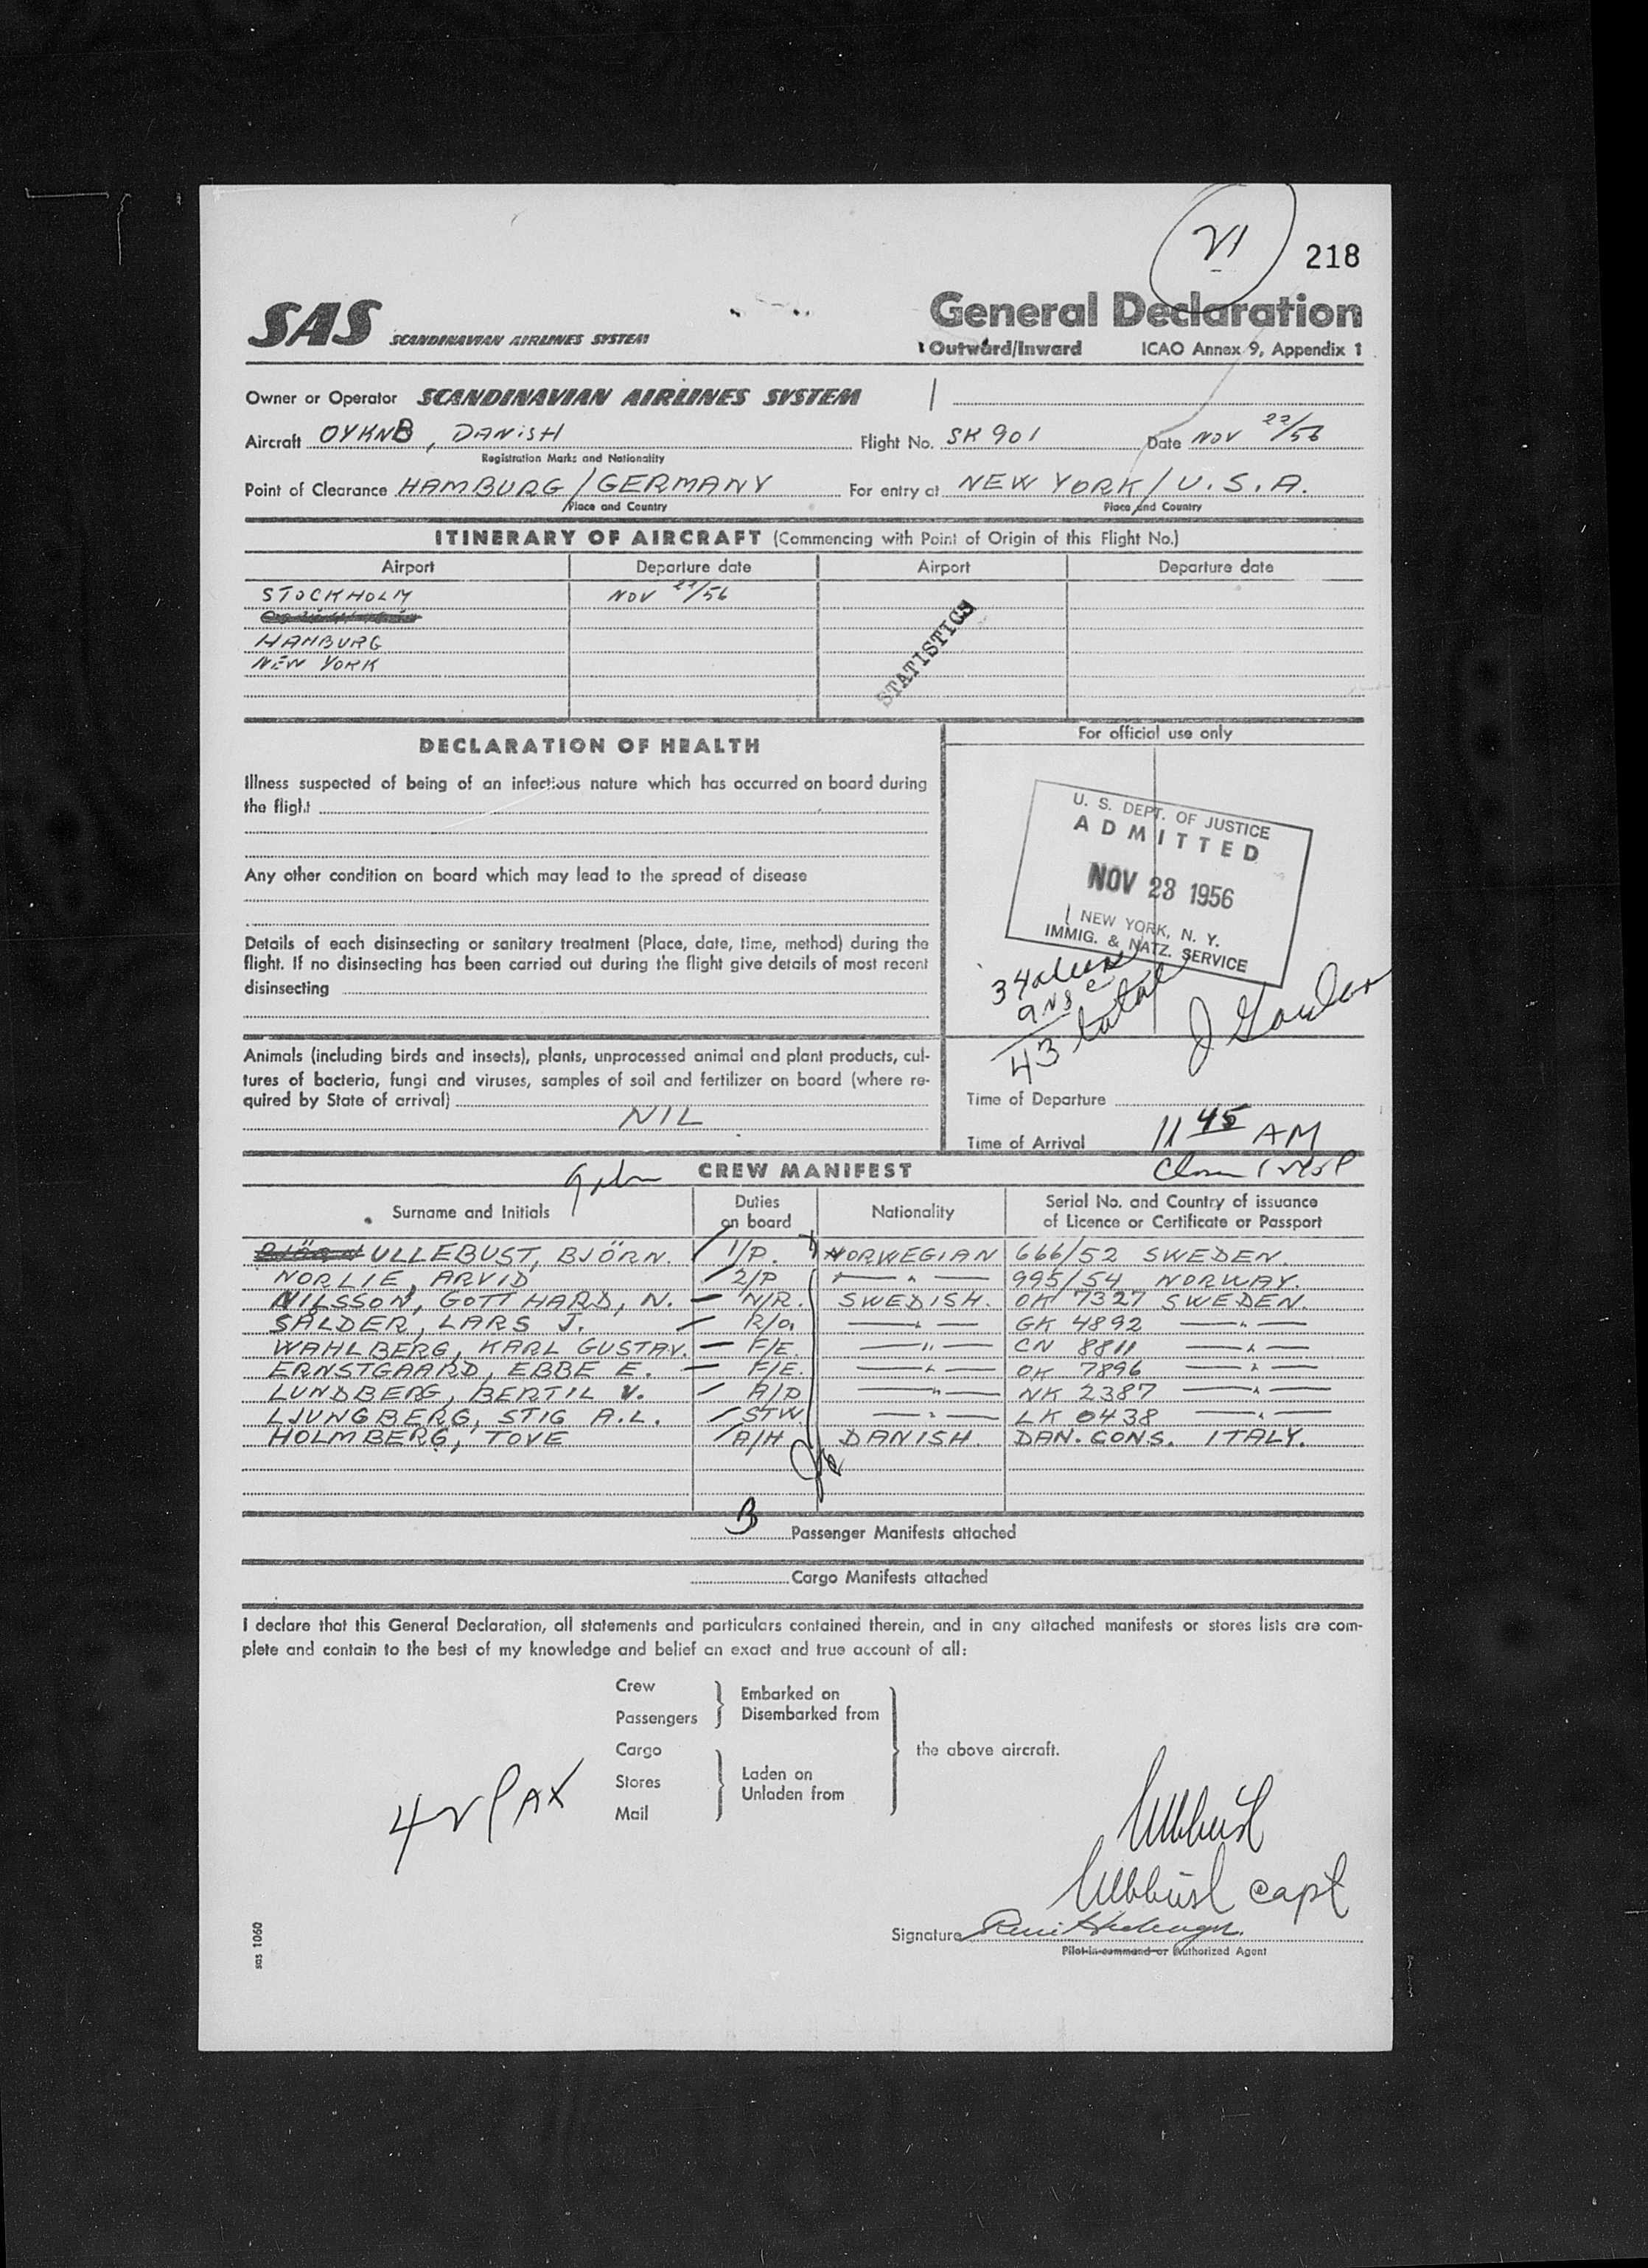 21 218
SAS SCANDINAVIAN AIRLINES SYSTEM
General Declaration
Outward/Inward ICAO Annex 9, Appendix 1
Owner or Operator SCANDINAVIAN AIRLINES SYSTEM
Aircraft OYKNB, DANISH Flight No. SK 901 Date NOV 22/56
Registration Marks and Nationality
Point of Clearance HAMBURG/GERMANY For entry at NEW YORK/U.S.A.
Place and Country Place and Country
ITINERARY OF AIRCRAFT (Commencing with Point of Origin of this Flight No.)
Airport Departure date Airport Departure date
STOCKHOLM NOV 22/56
HAMBURG
NEW YORK
STATISTICS
DECLARATION OF HEALTH
Illness suspected of being of an infectious nature which has occurred on board during
the flight
Any other condition on board which may lead to the spread of disease
Details of each disinsecting or sanitary treatment (Place, date, time, method) during the
flight. If no disinsecting has been carried out during the flight give details of most recent
disinsecting
Animals (including birds and insects), plants, unprocessed animal and plant products, cul-
tures of bacteria, fungi and viruses, samples of soil and fertilizer on board (where re-
quired by State of arrival)
NIL
For official use only
U. S. DEPT. OF JUSTICE
ADMITTED
NOV 23 1956
NEW YORK, N. Y.
IMMIG. & NATZ. SERVICE
34 aliens
9 US C
43 total
Time of Departure
Time of Arrival 11 45 AM
CREW MANIFEST
Surname and Initials Duties on board Nationality Serial No. and Country of issuance of Licence or Certificate or Passport
ULLEBUST, BJÖRN. 1/P. NORWEGIAN 666/52 SWEDEN.
NORLIE, ARVID 2/P — " — 995/54 NORWAY.
NILSSON, GOTTHARD, N. N/R. SWEDISH. OK 7327 SWEDEN.
SALDER, LARS J. R/o. — " — GK 4892 — " —
WAHLBERG, KARL GUSTAV. F/E. — " — CN 8811 — " —
ERNSTGAARD, EBBE E. F/E. — " — OK 7896 — " —
LUNDBERG, BERTIL V. A/P — " — NK 2387 — " —
LJUNGBERG, STIG A.L. STW. — " — LK 0438 — " —
HOLMBERG, TOVE A/H DANISH. DAN. CONS. ITALY.
3 Passenger Manifests attached
Cargo Manifests attached
I declare that this General Declaration, all statements and particulars contained therein, and in any attached manifests or stores lists are com-
plete and contain to the best of my knowledge and belief an exact and true account of all:
Crew
Passengers
Embarked on
Disembarked from
Cargo
Stores
Mail
Laden on
Unladen from
the above aircraft.
42 PAX
capt
Signature
Pilot-in-command or Authorized Agent
sas 1060